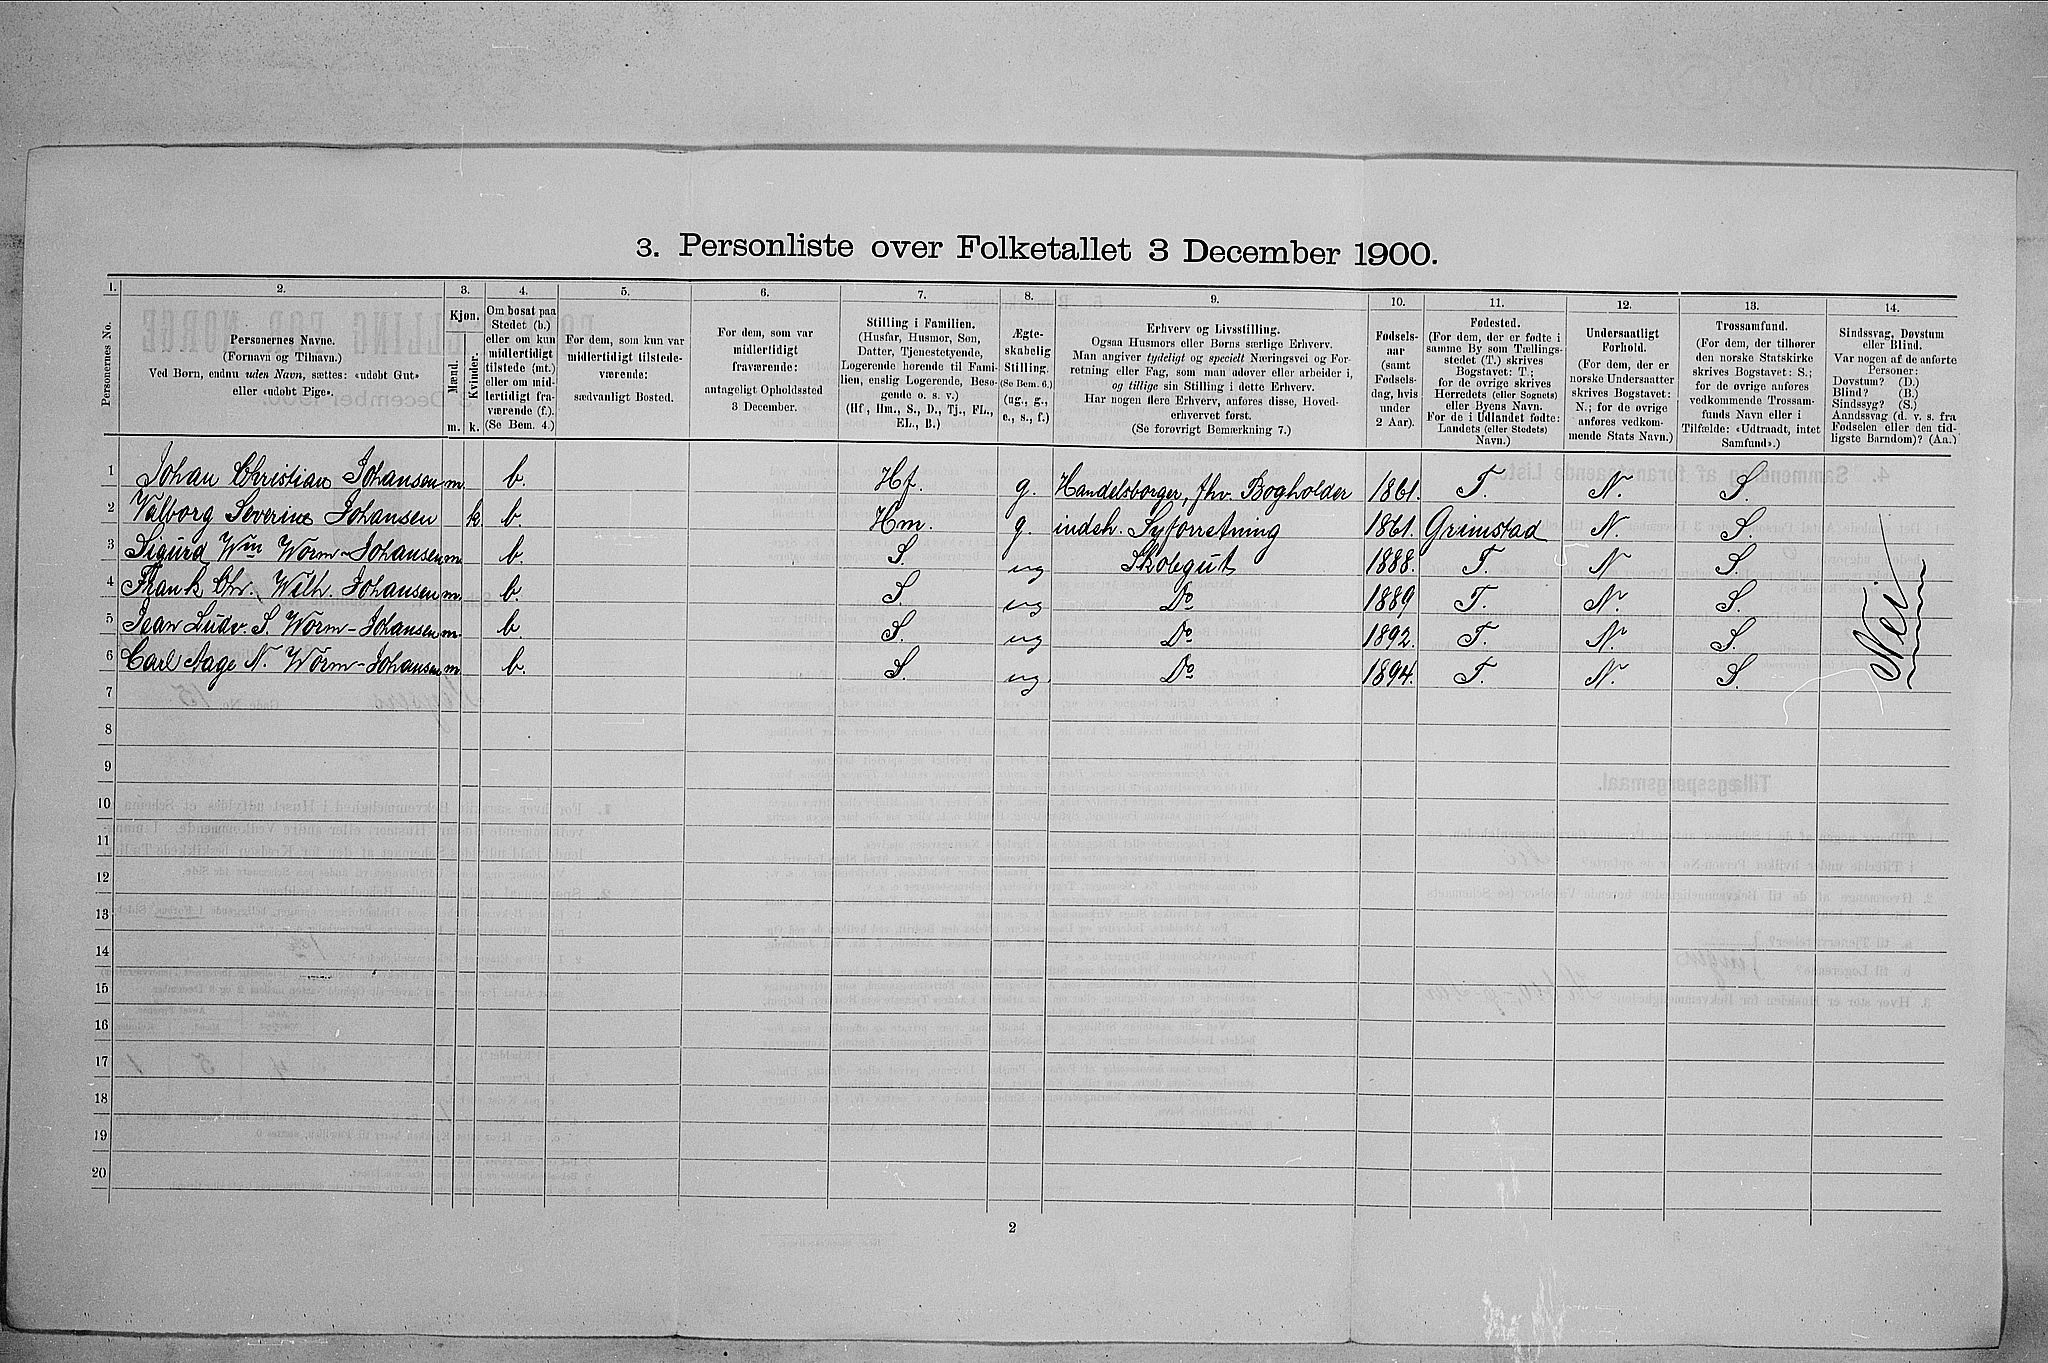 3. Personliste over Folketallet 3 December 1900.
1. 2. 3. 4. 5. 6. 7. 8. 9. 10. 11. 12. 13. 14.
Personernes No.
Personernes Navne.
(Fornavn og Tilnavn.)
Ved Børn, endnu uden Navn, sættes: «udøbt Gut»
eller «udøbt Pige».
Kjøn.
Mænd. Kvinder.
m. k.
Om bosat paa
Stedet (b.)
eller om kun
midlertidigt
tilstede (mt.)
eller om mid-
lertidigt fra-
værende (f.).
(Se Bem. 4.)
For dem, som kun var
midlertidigt tilstede-
værende:
sædvanligt Bosted.
For dem, som var
midlertidigt
fraværende:
antageligt Opholdssted
3 December.
Stilling i Familien.
(Husfar, Husmor, Søn,
Datter, Tjenestetyende,
Logerende hørende til Fami-
lien, enslig Logerende, Besø-
gende o. s. v.)
(Hf., Hm., S., D., Tj., FL.,
EL., B.)
Ægte-
skabelig
Stilling.
(Se Bem. 6.)
(ug., g.,
e., s., f.)
Erhverv og Livsstilling.
Ogsaa Husmors eller Børns særlige Erhverv.
Man angiver tydeligt og specielt Næringsvei og For-
retning eller Fag, som man udøver eller arbeider i,
og tillige sin Stilling i dette Erhverv.
Har nogen flere Erhverv, anføres disse, Hoved-
erhvervet først.
(Se forøvrigt Bemærkning 7.)
Fødsels-
aar
(samt
Fødsels-
dag, hvis
under
2 Aar).
Fødested.
(For dem, der er fødte i
samme By som Tællings-
stedet (T.) skrives
Bogstavet: T.;
for de øvrige skrives
Herredets (eller Sognets)
eller Byens Navn.
For de i Udlandet fødte:
Landets (eller Stedets)
Navn.)
Undersaatligt
Forhold.
(For dem, der er
norske Undersaatter
skrives Bogstavet:
N.; for de øvrige
anføres vedkom-
mende Stats Navn.)
Trossamfund.
(For dem, der tilhører
den norske Statskirke
skrives Bogstavet: S.;
for de øvrige anføres
vedkommende Trossam-
funds Navn eller i
Tilfælde: «Udtraadt, intet
Samfund».)
Sindssvag, Døvstum
eller Blind.
Var nogen af de anførte
Personer:
Døvstum? (D.)
Blind? (B.)
Sindssyg? (S.)
Aandssvag (d. v. s. fra
Fødselen eller den tid-
ligste Barndom)? (Aa.)
1 Johan Christian Johansen m. b. Hf. g. Handelsborger, fhv. Bogholder 1861. T. N. S.
2 Valborg Severine Johansen k. b. Hm. g. indeh. Syforretning 1861. Grimstad N. S.
3 Sigurd Wm Worm-Johansen m. b. S. ug Skolegut 1888. T. N S
4 Frank Chr. Wilh. Johansen m. b. S. ug Do 1889 T. N. S.
5 Jean Ludv. S. Worm-Johansen m. b. S. ug Do 1892. T. N. S.
6 Carl Aage N. Worm-Johansen m. b. S ug Do 1894. T. N. S.
Nei
7
8
9
10
11
12
13
14
15
16
17
18
19
20
2